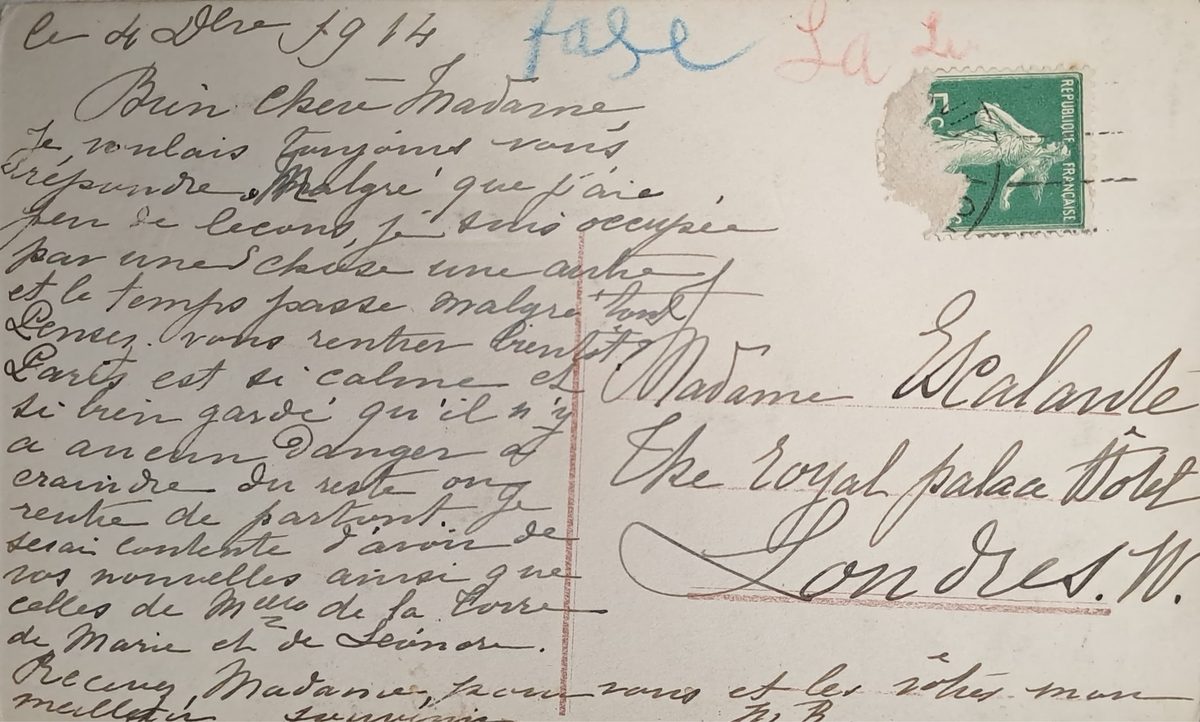 le 4 Dbre 1914
Bien Chère Madame
Je voulais toujours vous
répondre Malgré que j'aie
peu de leçons, je suis occupée
par une chose une autre
et le temps passe malgré tout
Pensez-vous rentrer bientôt?
Paris est si calme et
si bien gardé qu'il n'y
a aucun Danger à
craindre du reste on
rentre de partout. Je
serai contente d'avoir de
vos nouvelles ainsi que
celles de Melles de la Torre
de Marie et de Léandre.
Recevez, Madame, pour vous et les vôtres mon
meilleur souvenir
La
5c
REPUBLIQUE FRANÇAISE
Madame Escalante
The royal palace Hôtel
Londres. W.